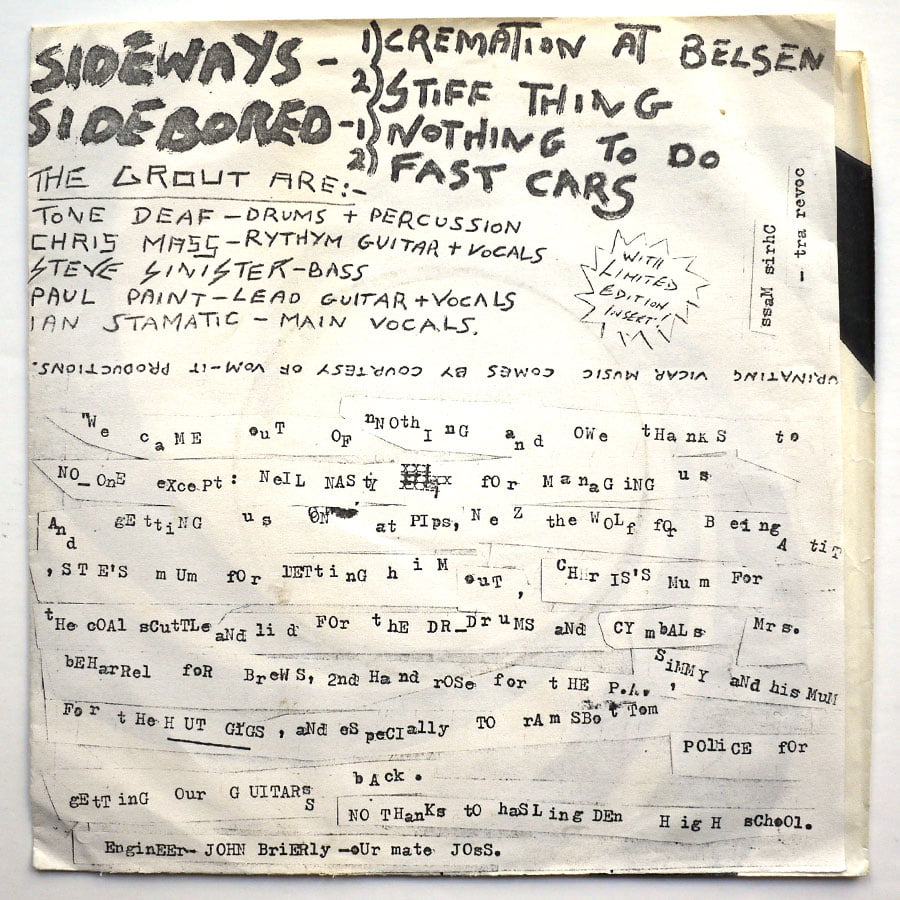 SIDEWAYS - 1) CREMATION AT BELSEN
2) STIFF THING
SIDEBORED - 1) NOTHING TO DO
2) FAST CARS
THE GROUT ARE:-
TONE DEAF - DRUMS + PERCUSSION
CHRIS MASS - RYTHYM GUITAR + VOCALS
STEVE SINISTER - BASS
PAUL PAINT - LEAD GUITAR + VOCALS
IAN STAMATIC - MAIN VOCALS.
WITH
LIMITED
EDITION
INSERT!
Chris Mass
- tra revoc
URINATING VICAR MUSIC COMES BY COURTESY OF VOM-IT PRODUCTIONS.
"We caME ouT OF nNOthInG and OWe tHanKS to
NO_OnE exCePt: NeIL NAStY fOr ManaGiNG us
And gEttiNG us ON at PIps, NeZ the WOLf fOr Being A tiT
, STE'S mUm fOr lETtinG hiM ouT, CHrIS'S Mum For
tHe cOAl sCutTLe aNd lid FOr the DR_DruMS aNd CYmbALs Mrs.
bEHarrel foR BreWS, 2nd Hand rOSe for tHE P.A., SiMMY aNd his MuM
For tHe HUT GIGS, aNd eSpeCIally TO rAmSBotTom
POliCE fOr
gEtTinG Our GUITARS bAck.
NO THanKs tO haSLingDEn HigH sChoOl.
EnginEEr- JOHN BriERly -oUr mate JOsS.